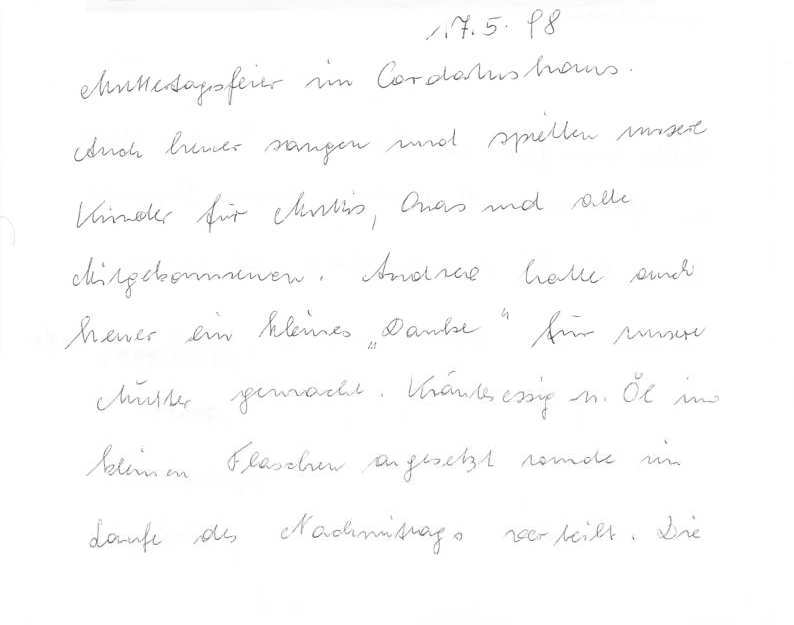 17.5.98
Muttertagsfeier im Cordatushaus.
Auch heuer sangen und spielten unsere
Kinder für Muttis, Omas und alle
Mitgekommenen. Andrea hatte auch
heuer ein kleines „Danke" für unsere
Mütter gemacht. Kräuteressig u. Öl in
kleinen Flaschen angesetzt wurde im
Laufe des Nachmittags verteilt. Die